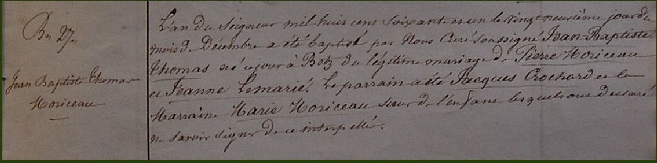 Bn 27.
Jean Baptiste Thomas
Moriceau
L'an du Seigneur mil huit cent soixante et un le vingt neuvième jour du
mois de Décembre a été baptisé par Nous Curé soussigné Jean Baptiste
Thomas né ce jour à Botz du légitime mariage de Pierre Moriceau
et Jeanne Lemarié. Le parrain a été Jacques Crochard et la
Marraine Marie Moriceau sœur de l'enfant lesquels ont déclaré
ne savoir signer de ce interpellé.